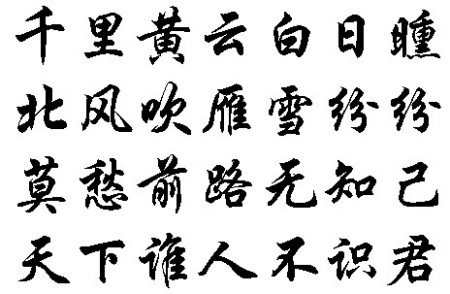 千里黄云白日曛
北风吹雁雪纷纷
莫愁前路无知己
天下谁人不识君